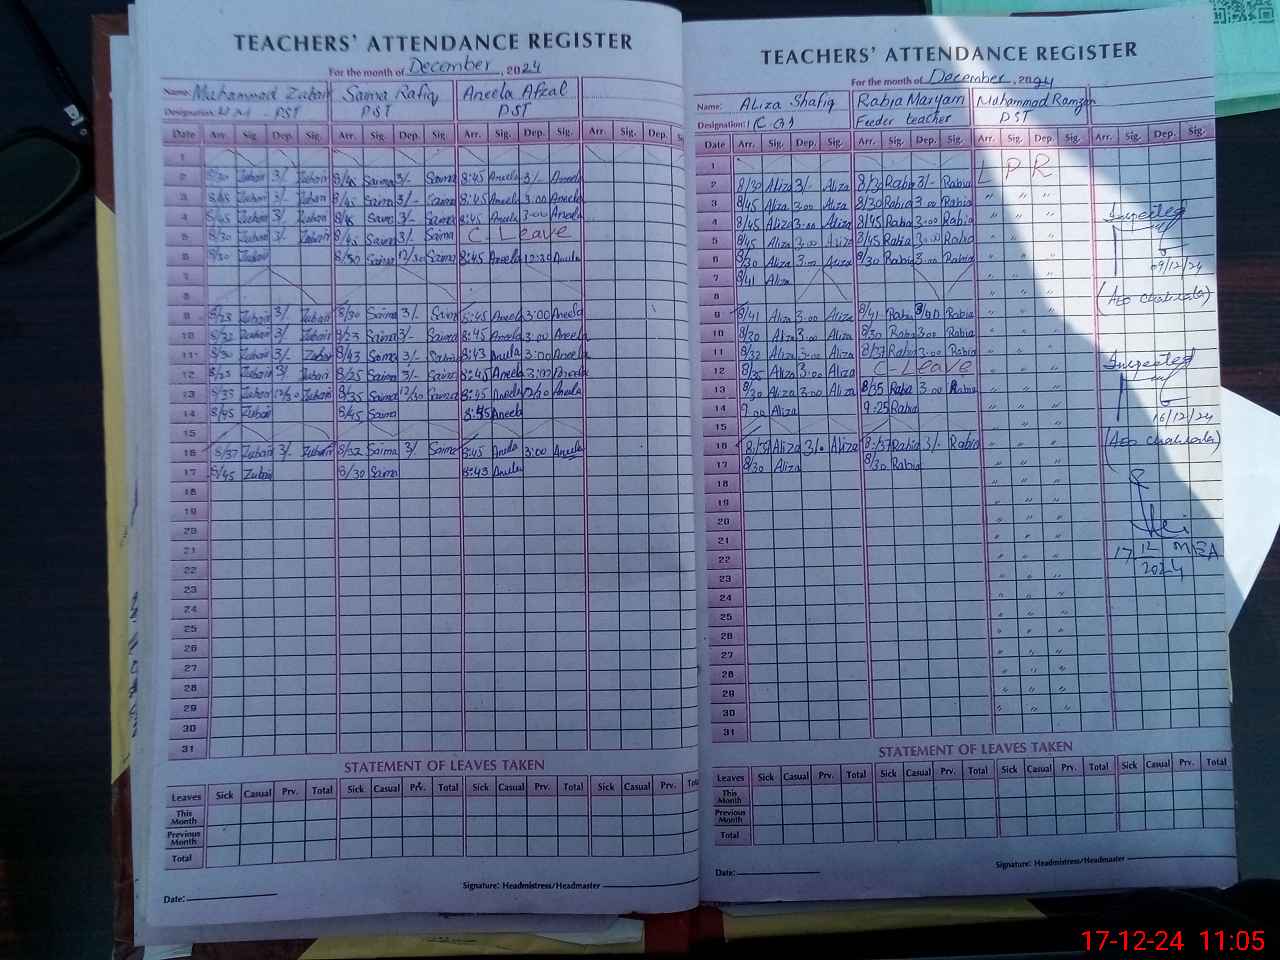 TEACHERS' ATTENDANCE REGISTER
For the month of December, 2024
Name: Muhammad Zubair Saima Rafiq Aneela Afzal
Designation: PST PST PST
Date Arr. Sig. Dep. Sig. Arr. Sig. Dep. Sig. Arr. Sig. Dep. Sig. Arr. Sig. Dep.
1
2 8/30 Zubair 3/- Zubair 8/45 Saima 3/- Saima 8:45 Aneela 3/- Aneela
3 8/45 Zubair 3/- Zubair 8/45 Saima 3/- Saima 8:45 Aneela 3:00 Aneela
4 8/45 Zubair 3/- Zubair 8/45 Saima 3/- Saima 8:45 Aneela 3:00 Aneela
5 8/30 Zubair 3/- Zubair 8/45 Saima 3/- Saima C-Leave
6 8/30 Zubair 8/30 Saima 12/30 Saima 8:45 Aneela 12:30 Aneela
7
8
9 Zubair 3/- Zubair 8/30 Saima 3/- Saima 8:45 Aneela 3:00 Aneela
10 Zubair 3/- Zubair Saima 3/- 8:45 Aneela 3:00 Aneela
11 8/30 Zubair 3/- Zubair 8/43 Saima 3/- Saima 8:43 Aneela 3:00 Aneela
12 8/25 Zubair 3/- Zubair 8/25 Saima 3/- Saima 8:45 Aneela 3:00 Aneela
13 8/35 Zubair 12/30 Zubair 8/35 Saima 12/30 Saima 8:45 Aneela 12/30 Aneela
14 8/45 Zubair 8/45 Saima 8:45 Aneela
15
16 8/37 Zubair 3/- Zubair 8/32 Saima 3/- Saima 8:45 Aneela 3:00 Aneela
17 8/45 Zubair 8/30 Saima 8:43 Aneela
18
19
20
21
22
23
24
25
26
27
28
29
30
31
STATEMENT OF LEAVES TAKEN
Leaves Sick Casual Prv. Total Sick Casual Prv. Total Sick Casual Prv. Total Sick Casual Prv.
This Month
Previous Month
Total
Signature: Headmistress/Headmaster
Date:
TEACHERS' ATTENDANCE REGISTER
For the month of December, 2024
Name: Aliza Shafiq Rabia Maryam Muhammad Ramzan
Designation: Feeder teacher PST
Date Arr. Sig. Dep. Sig. Arr. Sig. Dep. Sig. Arr. Sig. Dep. Arr. Sig. Dep. Sig.
1 L P R
2 8/30 Aliza 3/- Aliza 8/30 Rabia 3/- Rabia
3 8/45 Aliza 3:00 Aliza 8/30 Rabia 3:00 Rabia " " "
4 8/45 Aliza 3:00 Aliza 8/45 Rabia 3:00 Rabia " " " Inspected
5 8/45 Aliza 3:00 Aliza 8/45 Rabia 3:00 Rabia " " "
6 8/30 Aliza 3:00 Aliza 8/30 Rabia 3:00 Rabia " " " 09/12/24
7 8/41 Aliza " " "
8 " " "
9 8/41 Aliza 3:00 Aliza 8/41 Rabia 3/00 Rabia " " "
10 8/30 Aliza 3:00 Aliza 8/30 Rabia 3:00 Rabia " " "
11 8/32 Aliza 3:00 Aliza 8/37 Rabia 3:00 Rabia " " " Inspected
12 8/35 Aliza 3:00 Aliza C-Leave " " "
13 8/30 Aliza 3:00 Aliza 8/35 Rabia 3:00 Rabia " " "
14 9:00 Aliza 9:25 Rabia " " " 16/12/24
15 " " "
16 8:37 Aliza 3/- Aliza 8:37 Rabia 3/- Rabia " " "
17 8/30 Aliza 8/30 Rabia " " "
18 " " "
19 " " "
20 " " "
21 " " "
22 " " " 17 12 MEA 2024
23 " " "
24 " " "
25 " " "
26 " " "
27 " " "
28 " " "
29 " " "
30 " " "
31
STATEMENT OF LEAVES TAKEN
Leaves Sick Casual Prv. Total Sick Casual Prv. Total Sick Casual Prv. Total Sick Casual Prv. Total
This Month
Previous Month
Total
Signature: Headmistress/Headmaster
Date:
17-12-24 11:05